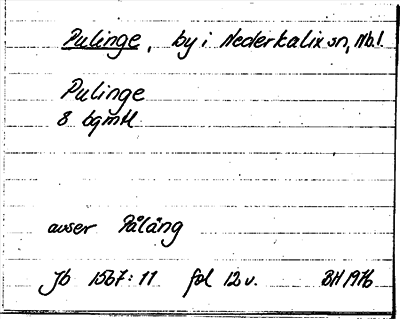 Pulinge, by i Nederkalix sn, Nb.l.
Pulinge
8 bqmtl
avser Pålång
Jb 1567:11 fol 12v. BH 1976